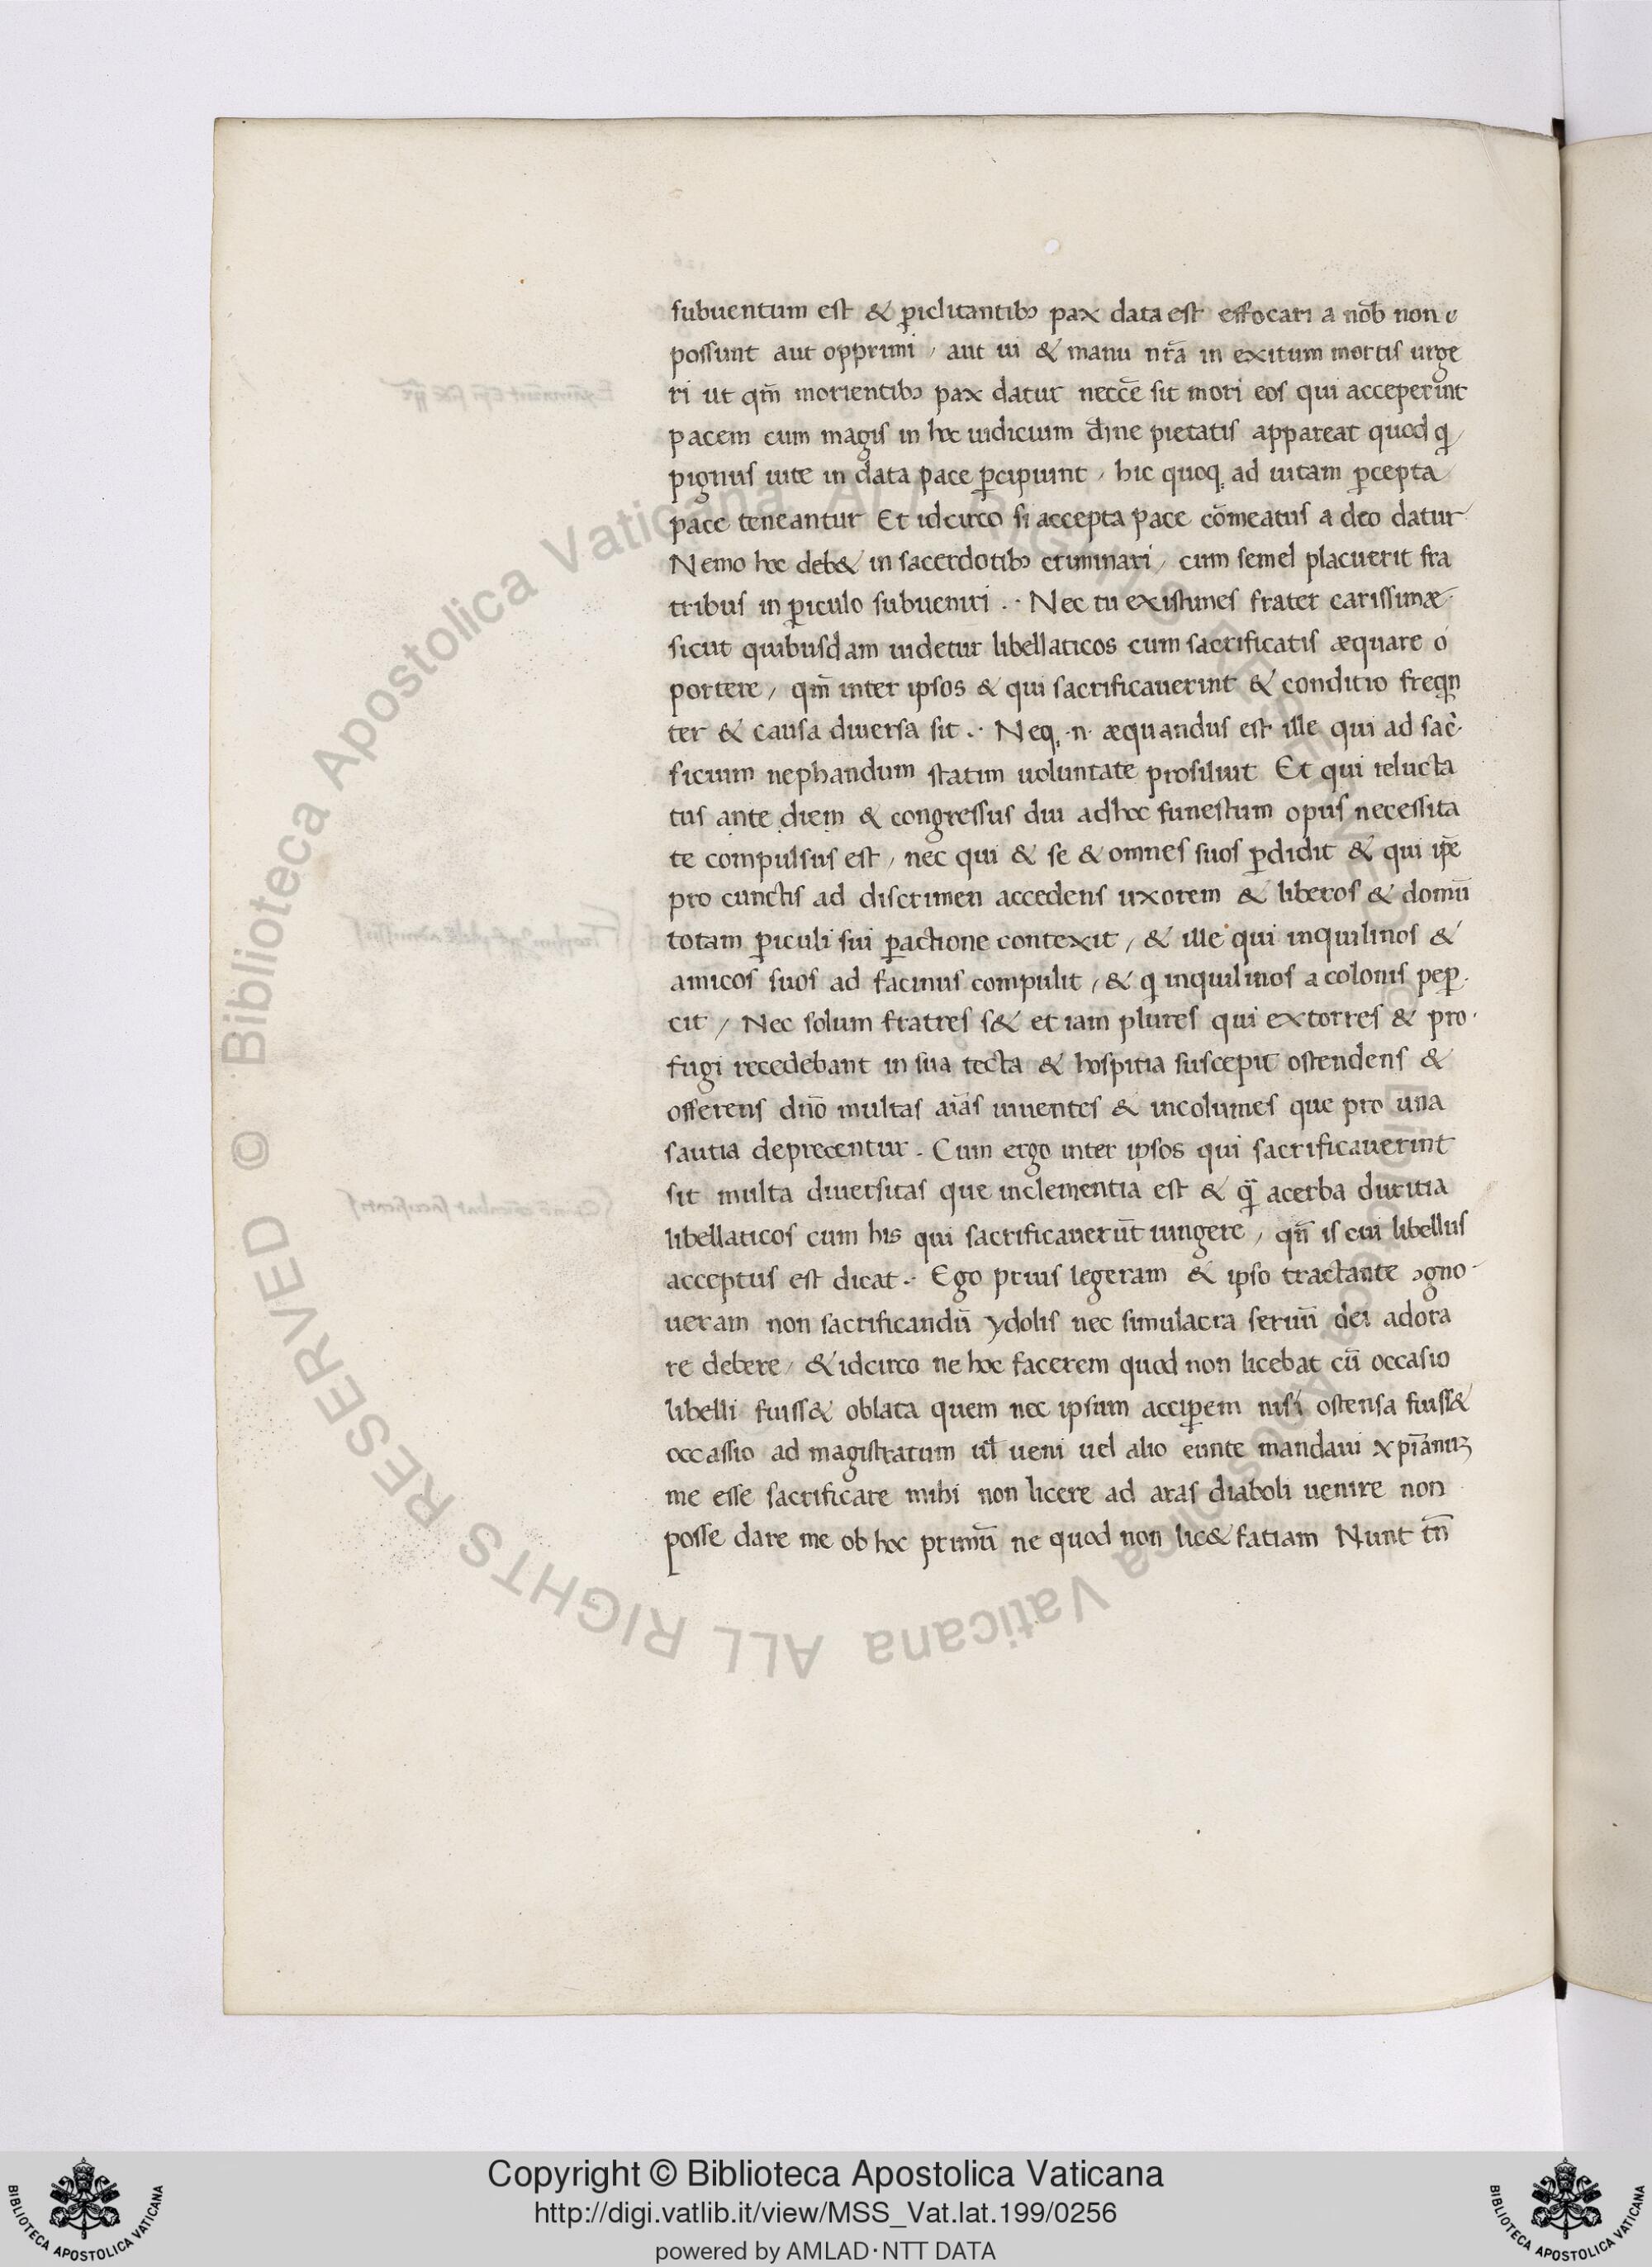 subuentum est & ꝑiclitantibꝰ pax data est effocari a nob̄ non
possunt aut opprimi / aut ui & manu nr̄a in exitum mortis urge
ri ut qm̄ morientibꝰ pax datur neccē sit mori eos qui acceperint
pacem cum magis in hoc iudicium diuine pietatis appareat quod q
pignus uite in data pace ꝑcipiunt / hic quoq; ad uitam ꝑcepta
pace teneantur Et idcirco si accepta pace cōmeatus a deo datur
Nemo hoc deb& in sacerdotibꝰ criminari / cum semel placuerit fra
tribus in ꝑiculo subueniri . · Nec tu existimes frater carissimæ
sicut quibusdam uidetur libellaticos cum sacrificatis æquare o
portere / qm̄ inter ipsos & qui sacrificauerint & conditio freqn
ter & causa diuersa sit . · Neq; ·n· æquandus est ille qui ad sac̄
ficium nephandum statim uoluntate prosiluit Et qui relucta
tus ante diem & congressus diu adhoc funestum opus necessita
te compulsus est / nec qui & se & omnes suos ꝑdidit & qui ip̄e
pro cunctis ad discrimen accedens uxorem & liberos & domū
totam ꝑiculi sui ꝑactione contexit / & ille qui inquilinos &
amicos suos ad facinus compulit / & q inquilinos a colonis peꝑ
cit / Nec solum fratres s& et iam plures qui extorres & pro
fugi recedebant in sua tecta & hospitia suscepit ostendens &
offerens dn̄o multas aīas uiuentes & incolumes que pro una
sautia deprecentur . Cum ergo inter ipsos qui sacrificauerint
sit multa diuersitas que inclementia est & q̄ acerba duritia
libellaticos cum his qui sacrificauerūt iungere / qn̄ is cui libellus
acceptus est dicat . · Ego prius legeram & ipso tractante ꝯgno
ueram non sacrificandū ydolis nec simulacra seruū dei adora
re debere / & idcirco ne hoc facerem quod non licebat cū occasio
libelli fuiss& oblata quem nec ipsum acciꝑem nisi ostensa fuiss&
occassio ad magistratum ul̄ ueni uel alio eunte mandaui xpīanuꝫ
me esse sacrificare mihi non licere ad aras diaboli uenire non
posse dare me ob hoc primū ne quod non lic& fatiam Nunt tn̄
Biblioteca Apostolica Vaticana ALL RIGHTS RESERVED ©
Biblioteca Apostolica Vaticana ALL RIGHTS RESERVED ©
Copyright © Biblioteca Apostolica Vaticana
http://digi.vatlib.it/view/MSS_Vat.lat.199/0256
powered by AMLAD·NTT DATA
BIBLIOTECA APOSTOLICA VATICANA
BIBLIOTECA APOSTOLICA VATICANA